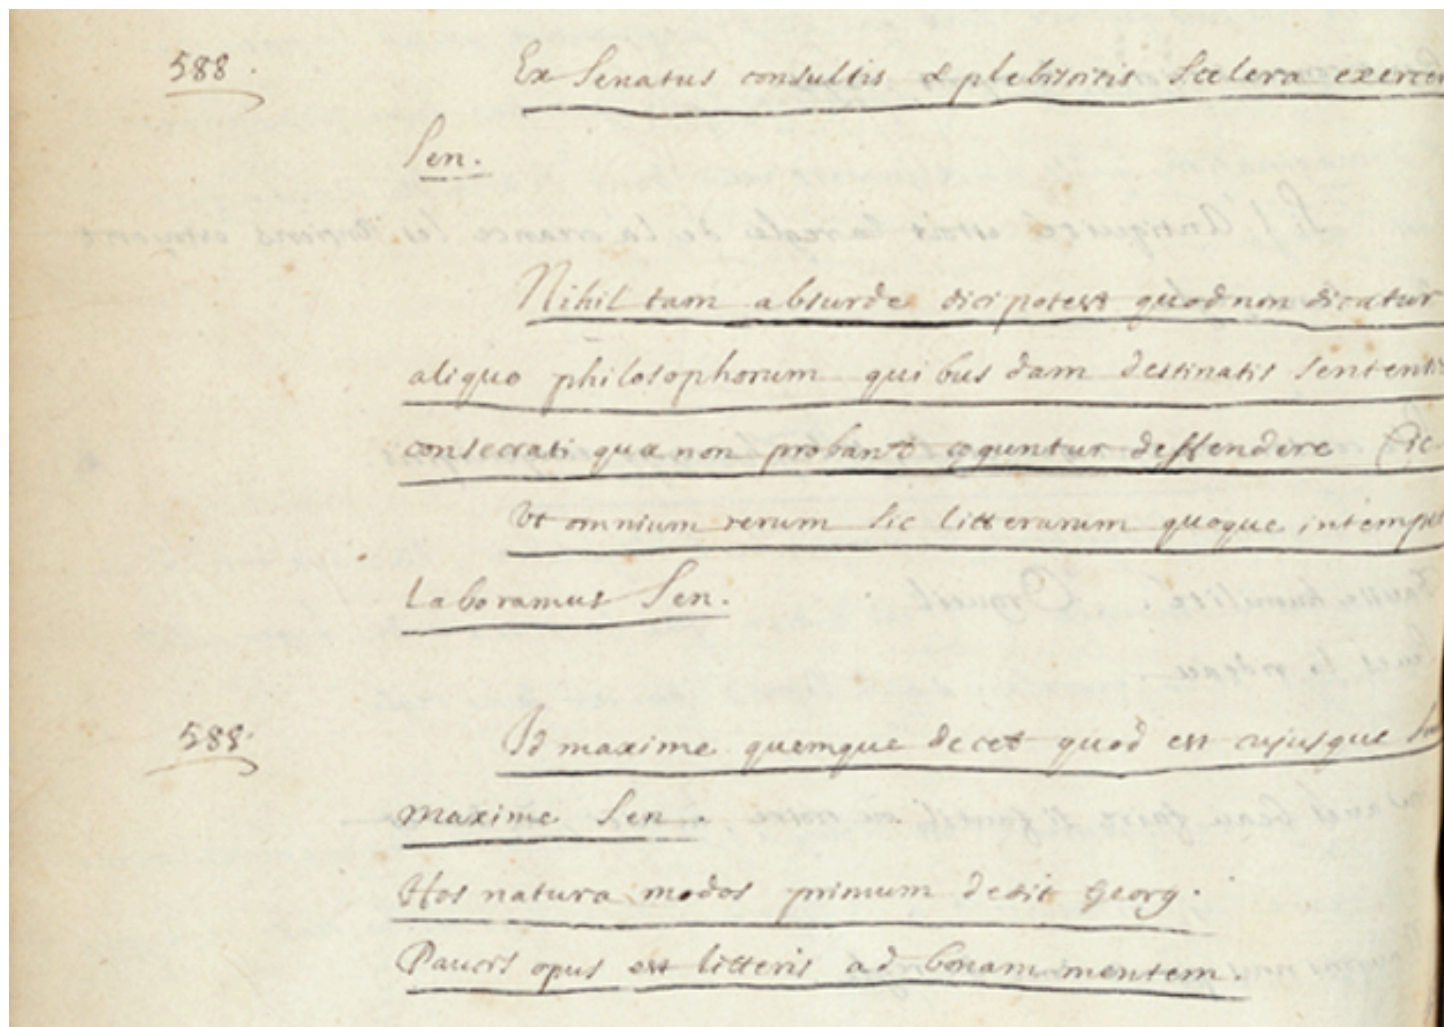 588.
Ex Senatus consultis & plebiscitis Scelera
Sen.
Nihil tam absurde dici potest quod non dicatur
aliquo philosophorum quibusdam destinatis
consecrati quæ non probant coguntur deffendere Cic.
Ut omnium rerum sic litterarum quoque
laboramus Sen.
588.
Id maxime quemque decet quod est cujusque
maxime Sen.
Hos natura modos primum dedit Georg.
Paucis opus est litteris ad bonam mentem.